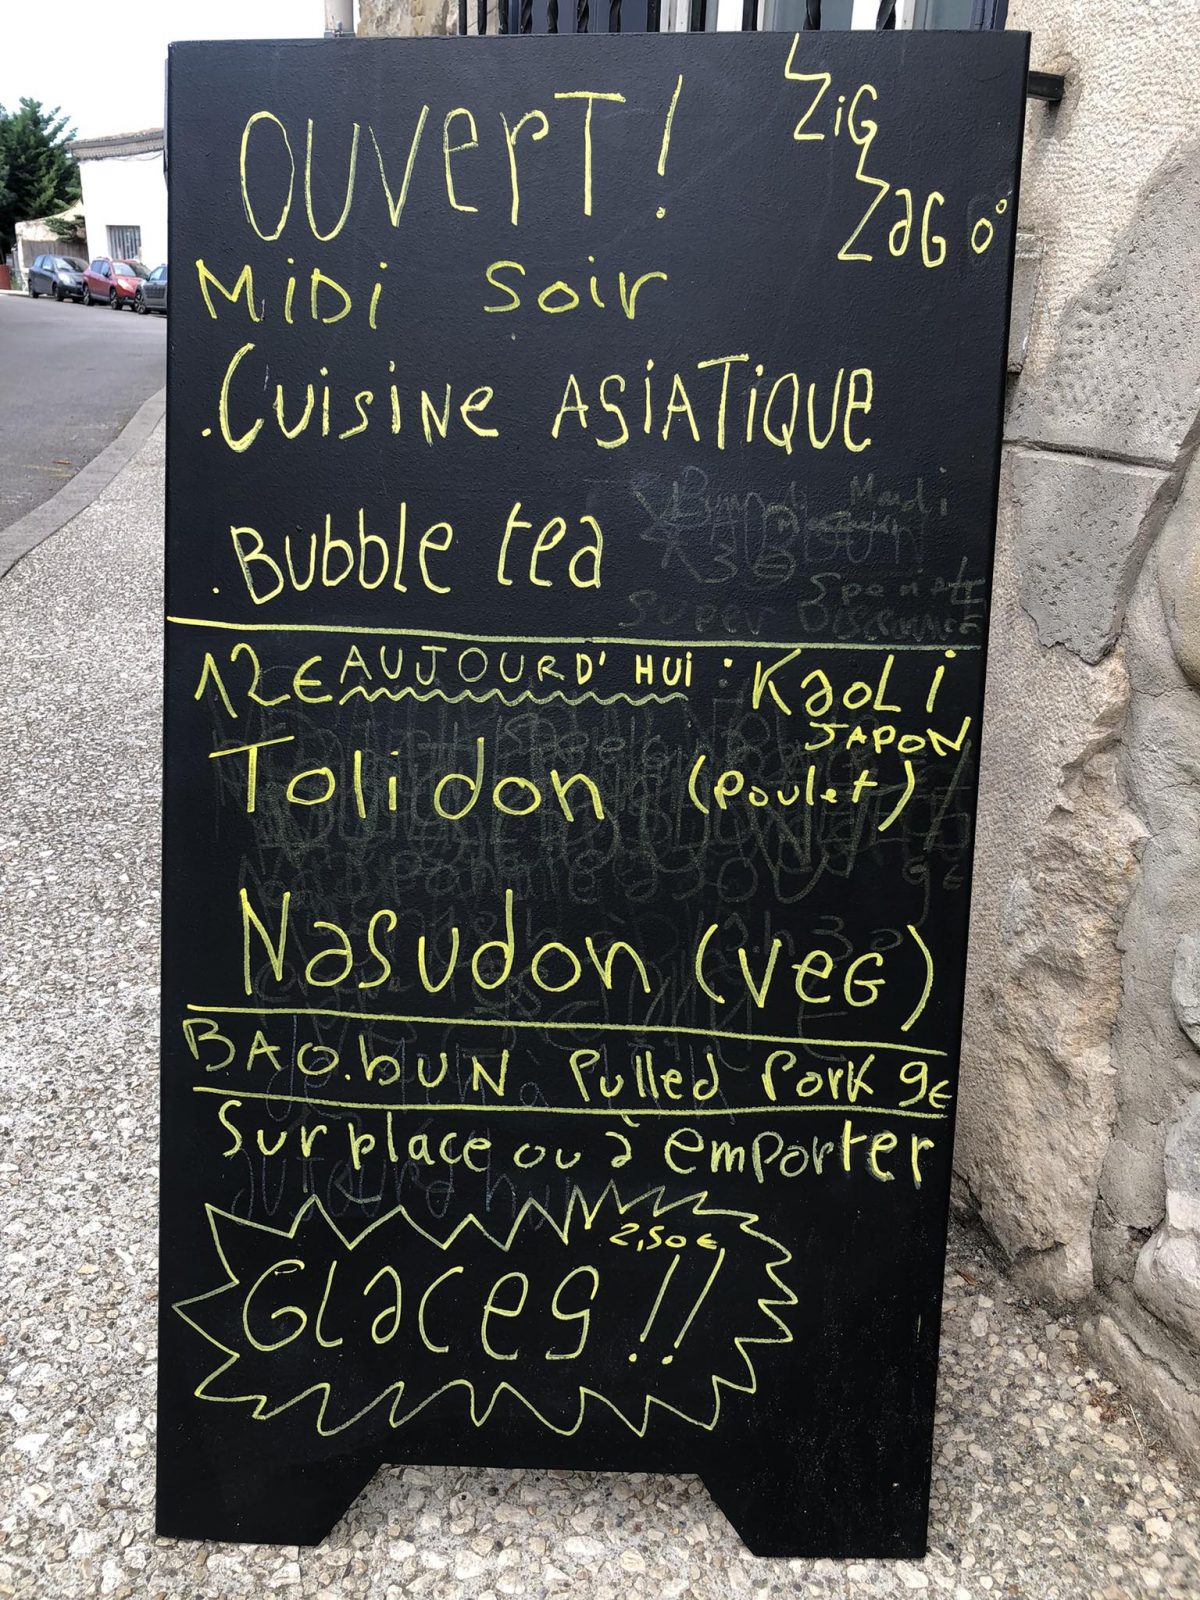 OUVerT !
ZiG
ZaG
MiDi soir
.Cuisine ASiATiQUE
.Bubble tea
12€ AUJOURD'HUi : KaoLi
JAPON
Tolidon (Poulet)
Nasudon (veG)
BAO.bUN Pulled Pork 9€
Sur place ou à emporter
2,50€
GLaces !!